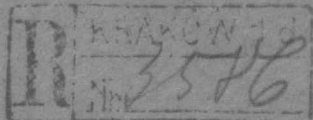 R
KRAKÓW 1 d
Nr 3586